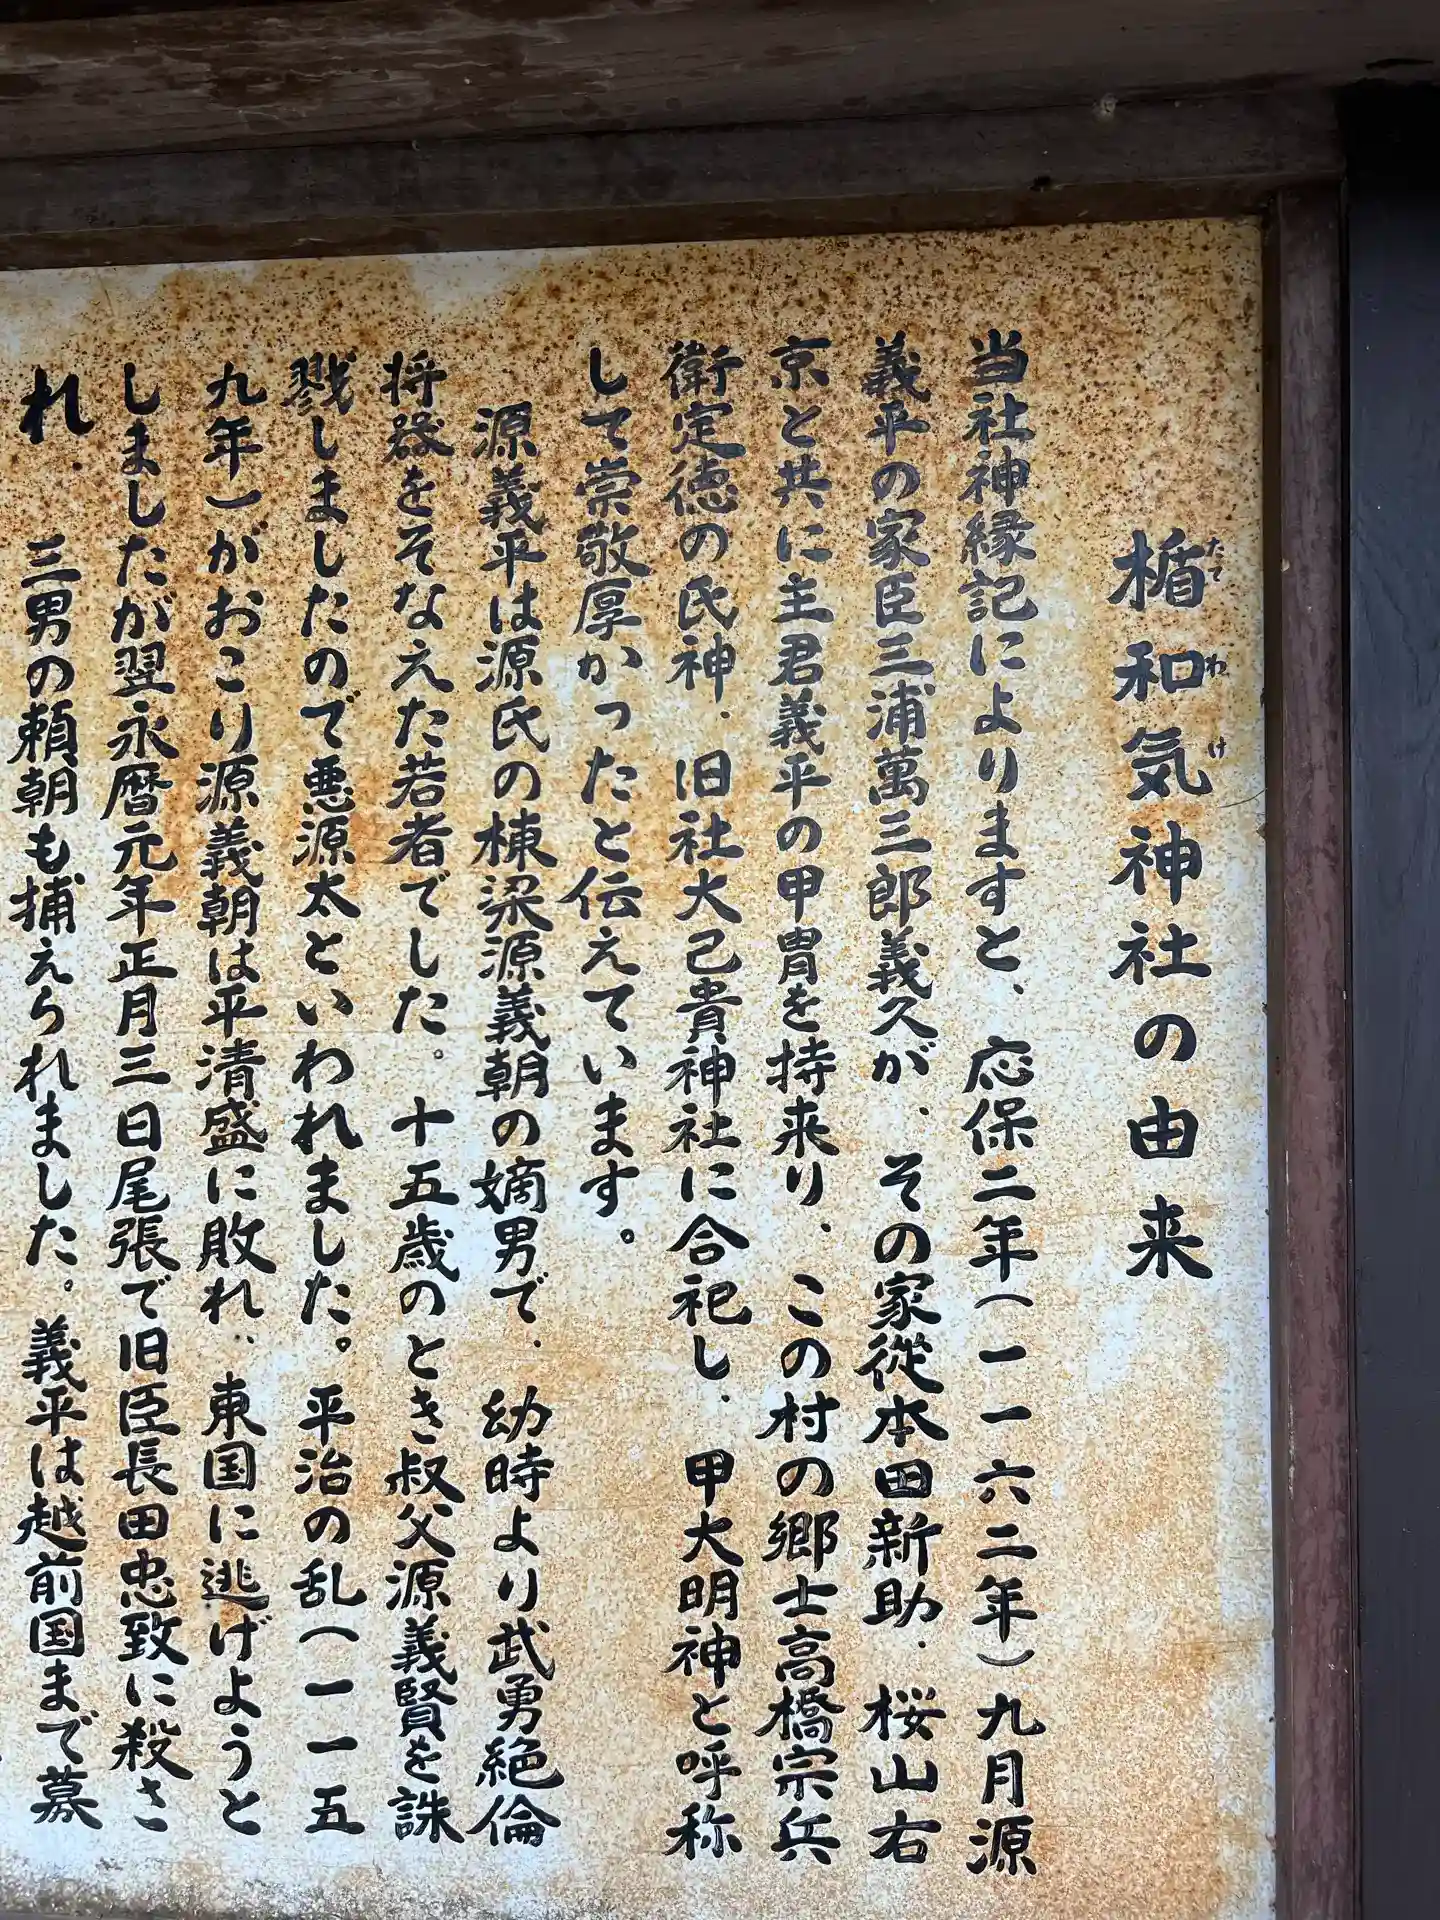 楯和気神社の由来
たてわけ
当社神縁記によりますと、応保二年(一一六二年)九月源
義平の家臣三浦萬三郎義久が、その家従本田新助、桜山右
京と共に主君義平の甲冑を持来り、この村の郷士高橋宗兵
衛定徳の氏神、旧社大己貴神社に合祀し、甲大明神と呼称
して崇敬厚かったと伝えています。
源義平は源氏の棟梁源義朝の嫡男で、幼時より武勇絶倫
将器をそなえた若者でした。十五歳のとき叔父源義賢を誅
戮しましたので悪源太といわれました。平治の乱(一一五
九年)がおこり源義朝は平清盛に敗れ、東国に逃げようと
しましたが翌永暦元年正月三日尾張で旧臣長田忠致に殺さ
れ、三男の頼朝も捕えられました。義平は越前国まで募